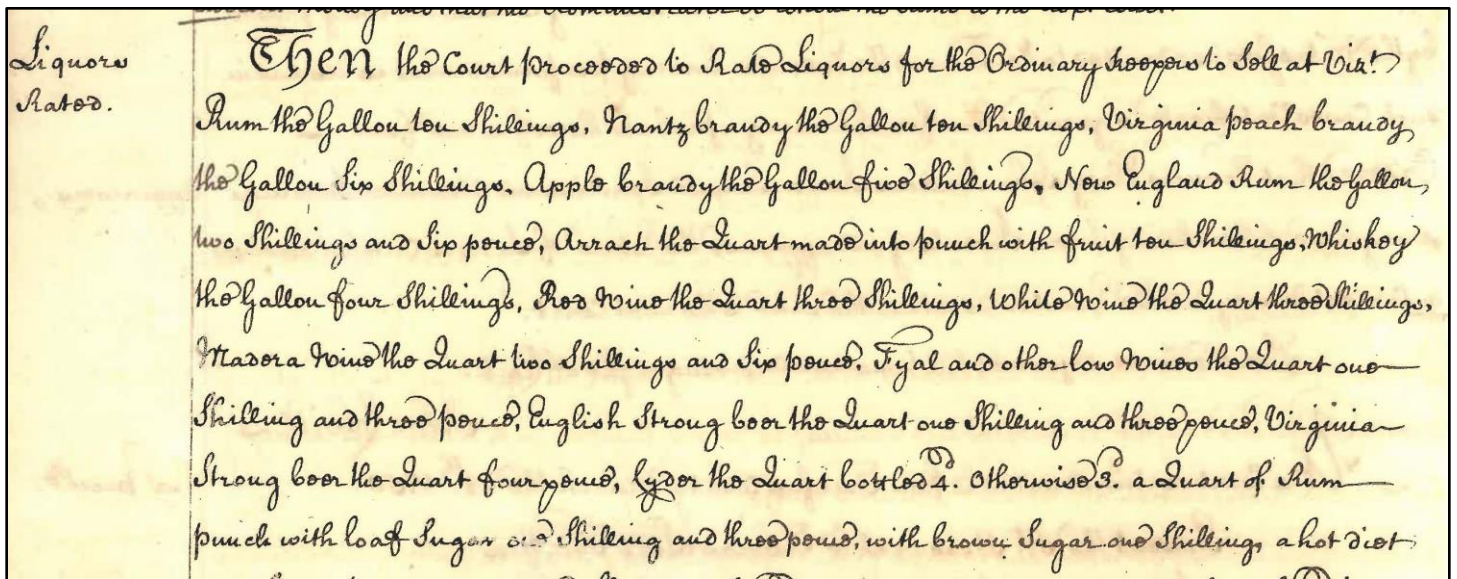 Liquors
Rated.
Then the Court proceeded to Rate Liquors for the Ordinary keepers to Sell at Vizt.
Rum the Gallon ten Shillings, Nantz brandy the Gallon ten Shillings, Virginia peach brandy
the Gallon Six Shillings, Apple brandy the Gallon five Shillings, New England Rum the Gallon,
two Shillings and Six pence, Arrack the Quart made into punch with fruit ten Shillings, Whiskey
the Gallon four Shillings, Red Wine the Quart three Shillings, White Wine the Quart three Shillings,
Madera Wine the Quart two Shillings and Six pence, Fyal and other low Wines the Quart one
Shilling and three pence, English Strong beer the Quart one Shilling and three pence, Virginia
Strong beer the Quart four pence, Cyder the Quart bottled 4d. Otherwise 3d. a Quart of Rum
punch with loaf Sugar one Shilling and three pence, with brown Sugar one Shilling, a hot diet